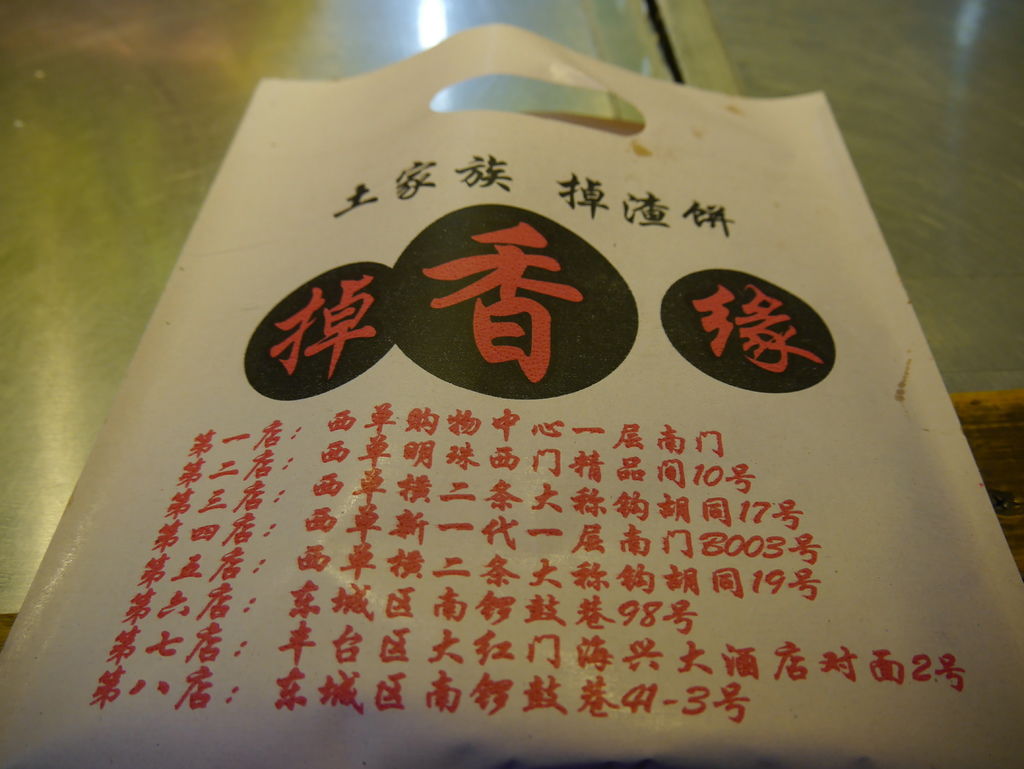 土家族 掉渣饼
掉香缘
第一店：西单购物中心一层南门
第二店：西单明珠西门精品间10号
第三店：西单横二条大称钩胡同17号
第四店：西单新一代一层南门B003号
第五店：西单横二条大称钩胡同19号
第六店：东城区南锣鼓巷98号
第七店：丰台区大红门海兴大酒店对面2号
第八店：东城区南锣鼓巷41-3号